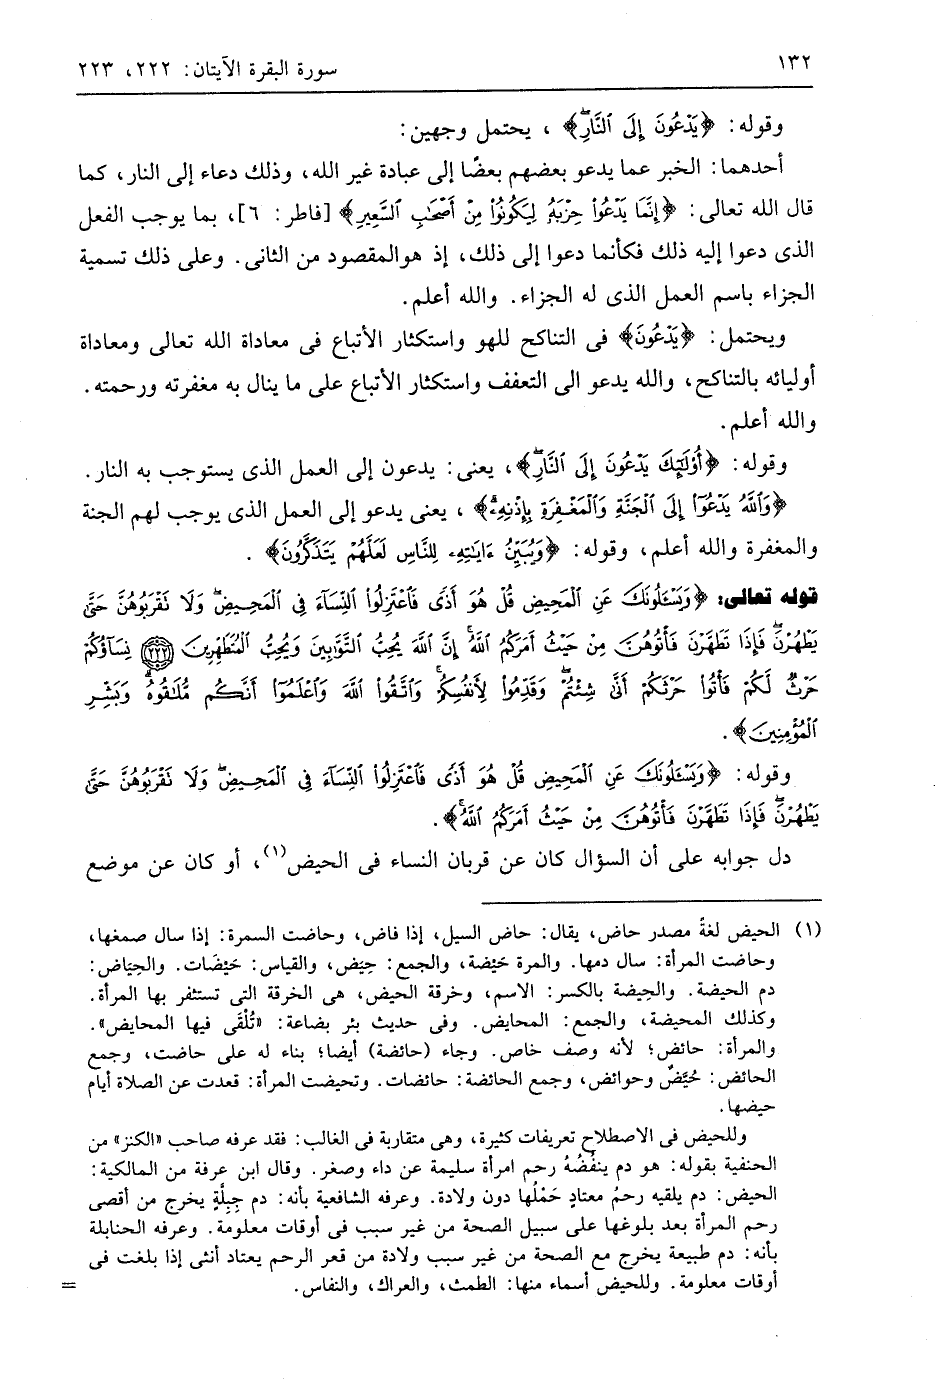 ١٣٢
سورة البقرة الآيتان: ٢٢٢، ٢٢٣
وقوله: ﴿يَدْعُونَ إِلَى ٱلنَّارِۖ﴾ ، يحتمل وجهين:
أحدهما: الخبر عما يدعو بعضهم بعضًا إلى عبادة غير الله، وذلك دعاء إلى النار، كما
قال الله تعالى: ﴿إِنَّمَا يَدْعُوا۟ حِزْبَهُۥ لِيَكُونُوا۟ مِنْ أَصْحَٰبِ ٱلسَّعِيرِ﴾ [فاطر: ٦]، بما يوجب الفعل
الذى دعوا إليه ذلك فكأنما دعوا إلى ذلك، إذ هوالمقصود من الثانى. وعلى ذلك تسمية
الجزاء باسم العمل الذى له الجزاء. والله أعلم.
ويحتمل: ﴿يَدْعُونَ﴾ فى التناكح للهو واستكثار الأتباع فى معاداة الله تعالى ومعاداة
أوليائه بالتناكح، والله يدعو الى التعفف واستكثار الأتباع على ما ينال به مغفرته ورحمته.
والله أعلم.
وقوله: ﴿أُو۟لَٰٓئِكَ يَدْعُونَ إِلَى ٱلنَّارِۖ﴾، يعنى: يدعون إلى العمل الذى يستوجب به النار.
﴿وَٱللَّهُ يَدْعُوٓا۟ إِلَى ٱلْجَنَّةِ وَٱلْمَغْفِرَةِ بِإِذْنِهِۦۖ﴾ ، يعنى يدعو إلى العمل الذى يوجب لهم الجنة
والمغفرة والله أعلم، وقوله: ﴿وَيُبَيِّنُ ءَايَٰتِهِۦ لِلنَّاسِ لَعَلَّهُمْ يَتَذَكَّرُونَ﴾ .
قوله تعالى: ﴿وَيَسْـَٔلُونَكَ عَنِ ٱلْمَحِيضِ قُلْ هُوَ أَذًى فَٱعْتَزِلُوا۟ ٱلنِّسَآءَ فِى ٱلْمَحِيضِۖ وَلَا تَقْرَبُوهُنَّ حَتَّىٰ
يَطْهُرْنَۖ فَإِذَا تَطَهَّرْنَ فَأْتُوهُنَّ مِنْ حَيْثُ أَمَرَكُمُ ٱللَّهُۚ إِنَّ ٱللَّهَ يُحِبُّ ٱلتَّوَّٰبِينَ وَيُحِبُّ ٱلْمُتَطَهِّرِينَ ٢٢٢ نِسَآؤُكُمْ
حَرْثٌ لَّكُمْ فَأْتُوا۟ حَرْثَكُمْ أَنَّىٰ شِئْتُمْۖ وَقَدِّمُوا۟ لِأَنفُسِكُمْۚ وَٱتَّقُوا۟ ٱللَّهَ وَٱعْلَمُوٓا۟ أَنَّكُم مُّلَٰقُوهُۗ وَبَشِّرِ
ٱلْمُؤْمِنِينَ﴾.
وقوله: ﴿وَيَسْـَٔلُونَكَ عَنِ ٱلْمَحِيضِ قُلْ هُوَ أَذًى فَٱعْتَزِلُوا۟ ٱلنِّسَآءَ فِى ٱلْمَحِيضِۖ وَلَا تَقْرَبُوهُنَّ حَتَّىٰ
يَطْهُرْنَۖ فَإِذَا تَطَهَّرْنَ فَأْتُوهُنَّ مِنْ حَيْثُ أَمَرَكُمُ ٱللَّهُۚ﴾.
دل جوابه على أن السؤال كان عن قربان النساء فى الحيض(١)، أو كان عن موضع
(١) الحيض لغةً مصدر حاض، يقال: حاض السيل، إذا فاض، وحاضت السمرة: إذا سال صمغها،
وحاضت المرأة: سال دمها. والمرة حَيْضة، والجمع: حِيَض، والقياس: حَيْضَات. والحِيَاض:
دم الحيضة. والحِيضة بالكسر: الاسم، وخرقة الحيض، هى الخرقة التى تستثفر بها المرأة.
وكذلك المحيضة، والجمع: المحايض. وفى حديث بئر بضاعة: «تُلْقَى فيها المحايض».
والمرأة: حائض؛ لأنه وصف خاص. وجاء (حائضة) أيضا؛ بناء له على حاضت، وجمع
الحائض: حُيَّضٌ وحوائض، وجمع الحائضة: حائضات. وتحيضت المرأة: قعدت عن الصلاة أيام
حيضها.
وللحيض فى الاصطلاح تعريفات كثيرة، وهى متقاربة فى الغالب: فقد عرفه صاحب «الكنز» من
الحنفية بقوله: هو دم ينفُضُهُ رحم امرأة سليمة عن داء وصغر. وقال ابن عرفة من المالكية:
الحيض: دم يلقيه رحمُ معتادٍ حَمْلُها دون ولادة. وعرفه الشافعية بأنه: دم جِبِلَّةٍ يخرج من أقصى
رحم المرأة بعد بلوغها على سبيل الصحة من غير سبب فى أوقات معلومة. وعرفه الحنابلة
بأنه: دم طبيعة يخرج مع الصحة من غير سبب ولادة من قعر الرحم يعتاد أنثى إذا بلغت فى
أوقات معلومة. وللحيض أسماء منها: الطمث، والعراك، والنفاس.
=